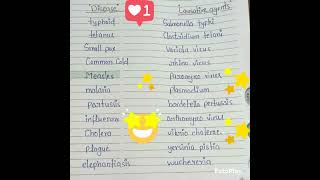 Disease Causative agents
typhoid Salmonella typhi
tetanus Clostridium tetani
Small pox Variola virus
Common Cold rhino virus
Measles virus
malaria plasmodium
Pertusis bordetella pertussis
influenza virus
Cholera vibrio cholerae
Plague yersinia pistia
elephantiasis wuchereria
1
FotoPlay